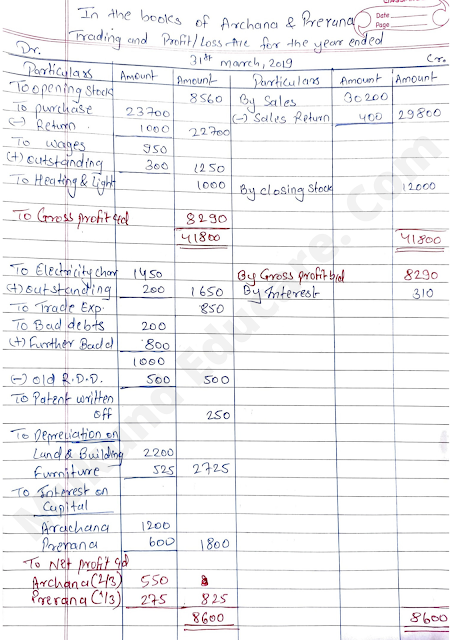 In the books of Archana & Prerana
Trading and Profit/Loss A/c for the year ended
31st march, 2019
Date
Page
Dr. Cr.
Particulars Amount Amount Particulars Amount Amount
To opening stock 8560 By Sales 30200
To purchase 23700 (-) Sales Return 400 29800
(-) Return 1000 22700
To wages 950
(+) outstanding 300 1250
To Heating & Light 1000 By closing Stock 12000
To Gross profit c/d 8290
41800 41800
To Electricity char 1450 By Gross profit b/d 8290
(+) outstanding 200 1650 By Interest 310
To Trade Exp. 850
To Bad debts 200
(+) Further Bad d 800
1000
(-) old R.D.D. 500 500
To Patent written
off 250
To Depreciation on
Land & Building 2200
Furniture 525 2725
To Interest on
Capital
Arachana 1200
Prerana 600 1800
To Net profit c/d
Archana (2/3) 550
Prerana (1/3) 275 825
8600 8600